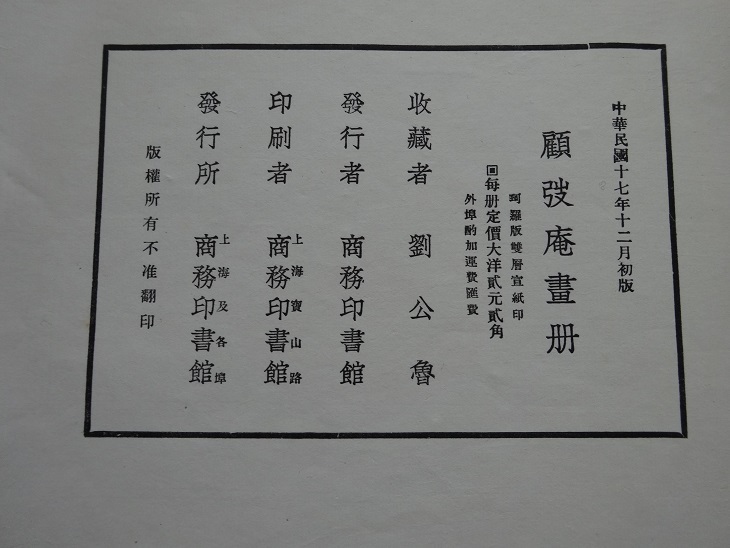 中華民國十七年十二月初版
顧弢庵畫册
珂羅版雙層宣紙印
回每册定價大洋貳元貳角
外埠酌加運費匯費
收藏者 劉公魯
發行者 商務印書館
印刷者 上海寶山路 商務印書館
發行所 上海及各埠 商務印書館
版權所有不准翻印